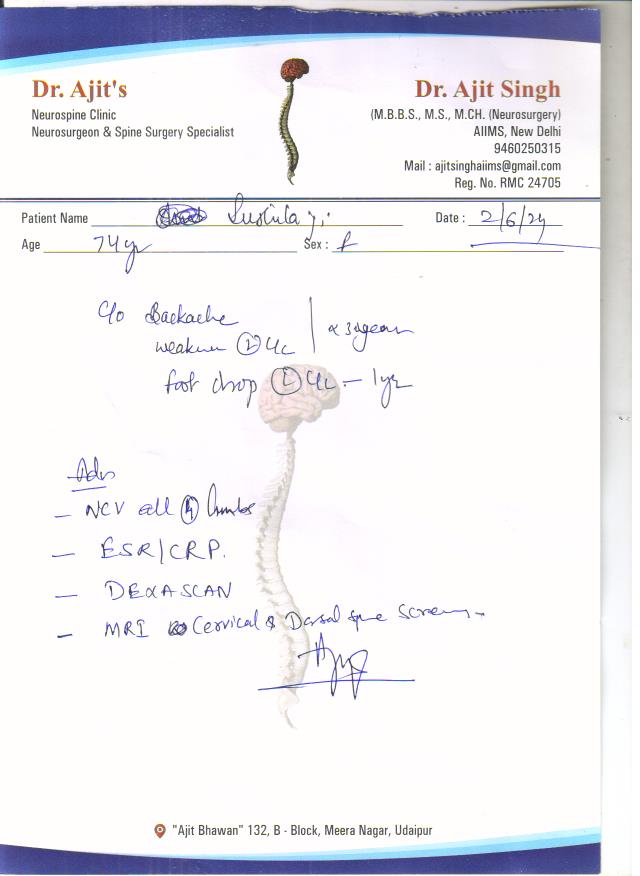 Dr. Ajit's
Neurospine Clinic
Neurosurgeon & Spine Surgery Specialist
Dr. Ajit Singh
(M.B.B.S., M.S., M.CH. (Neurosurgery)
AIIMS, New Delhi
9460250315
Mail : ajitsinghaiims@gmail.com
Reg. No. RMC 24705
Patient Name Sushila ji Date : 2/6/24
Age 74 yr Sex : f
C/o Backache
weakness (L)
foot drop (L) - 1 yr
Adv
- NCV all 4 limbs
- ESR/CRP.
- DEXA SCAN
- MRI Cervical & Dorsal spine screening
"Ajit Bhawan" 132, B - Block, Meera Nagar, Udaipur